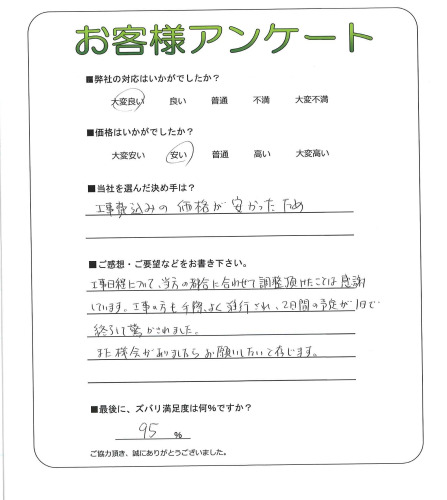 お客様アンケート
■弊社の対応はいかがでしたか？
大変良い 良い 普通 不満 大変不満
■価格はいかがでしたか？
大変安い 安い 普通 高い 大変高い
■当社を選んだ決め手は？
工事費込みの価格が安かったため
■ご感想・ご要望などをお書き下さい。
工事日程について、当方の都合に合わせて調整頂けたことは感謝
しています。工事の方も手際よく進行され、2日間の予定が1日で
終了して驚かされました。
また機会がありましたらお願いしたいと存じます。
■最後に、ズバリ満足度は何%ですか？
95 %
ご協力頂き、誠にありがとうございました。